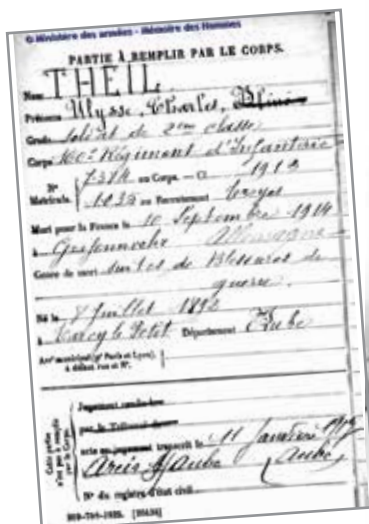 © Ministère des armées - Mémoire des Hommes
PARTIE À REMPLIR PAR LE CORPS.
Nom THEIL
Prénoms Ulysse, Charles,
Grade soldat de 2eme classe
Corps Régiment d'Infanterie
N° Matricule. au Corps. — Cl. 1912
au Recrutement Troyes
Mort pour la France le 10 Septembre 1914
à Allemagne
Genre de mort suites de Blessures de
guerre.
Né le Juillet 1892
à le Petit Département Aube
Arrt municipal (pr Paris et Lyon),
à défaut rue et N°.
Cette partie n'est pas à remplir par le Corps.
Jugement rendu le
par le Tribunal de
acte ou jugement transcrit le 11 Janvier
Arcis s/Aube (Aube)
N° du registre d'état civil